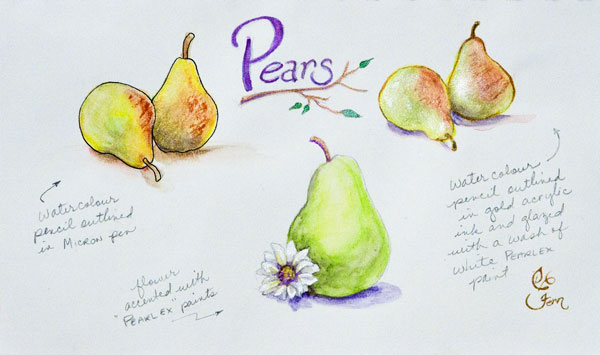 Pears
Watercolour
pencil outlined
in MICRON pen
Watercolour
pencil outlined
in gold acrylic
ink and glazed
with a wash of
White PEARLEX
paint
flower
accented with
"PEARLEX" paints
Fern